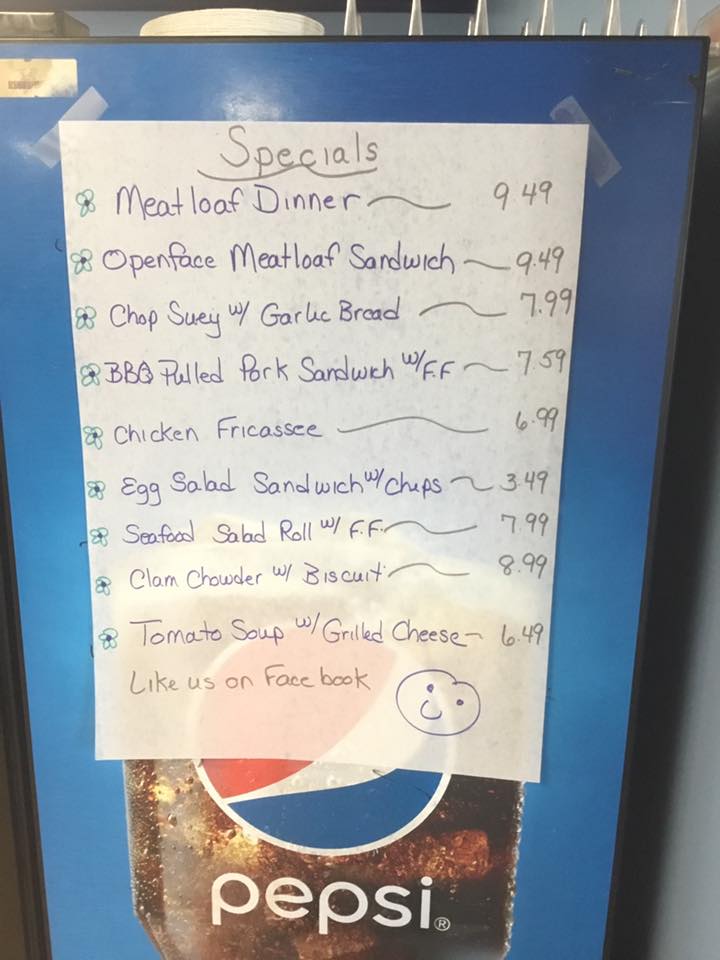 Specials
Meatloaf Dinner 9 49
Openface Meatloaf Sandwich 9.49
Chop Suey w/ Garlic Bread 7.99
BBQ Pulled Pork Sandwich w/F.F 7.59
Chicken Fricassee 6.99
Egg Salad Sandwich w/ Chips 3.49
Seafood Salad Roll w/ F.F. 7.99
Clam Chowder w/ Biscuit 8.99
Tomato Soup w/ Grilled Cheese 6.49
Like us on Face book
pepsi®